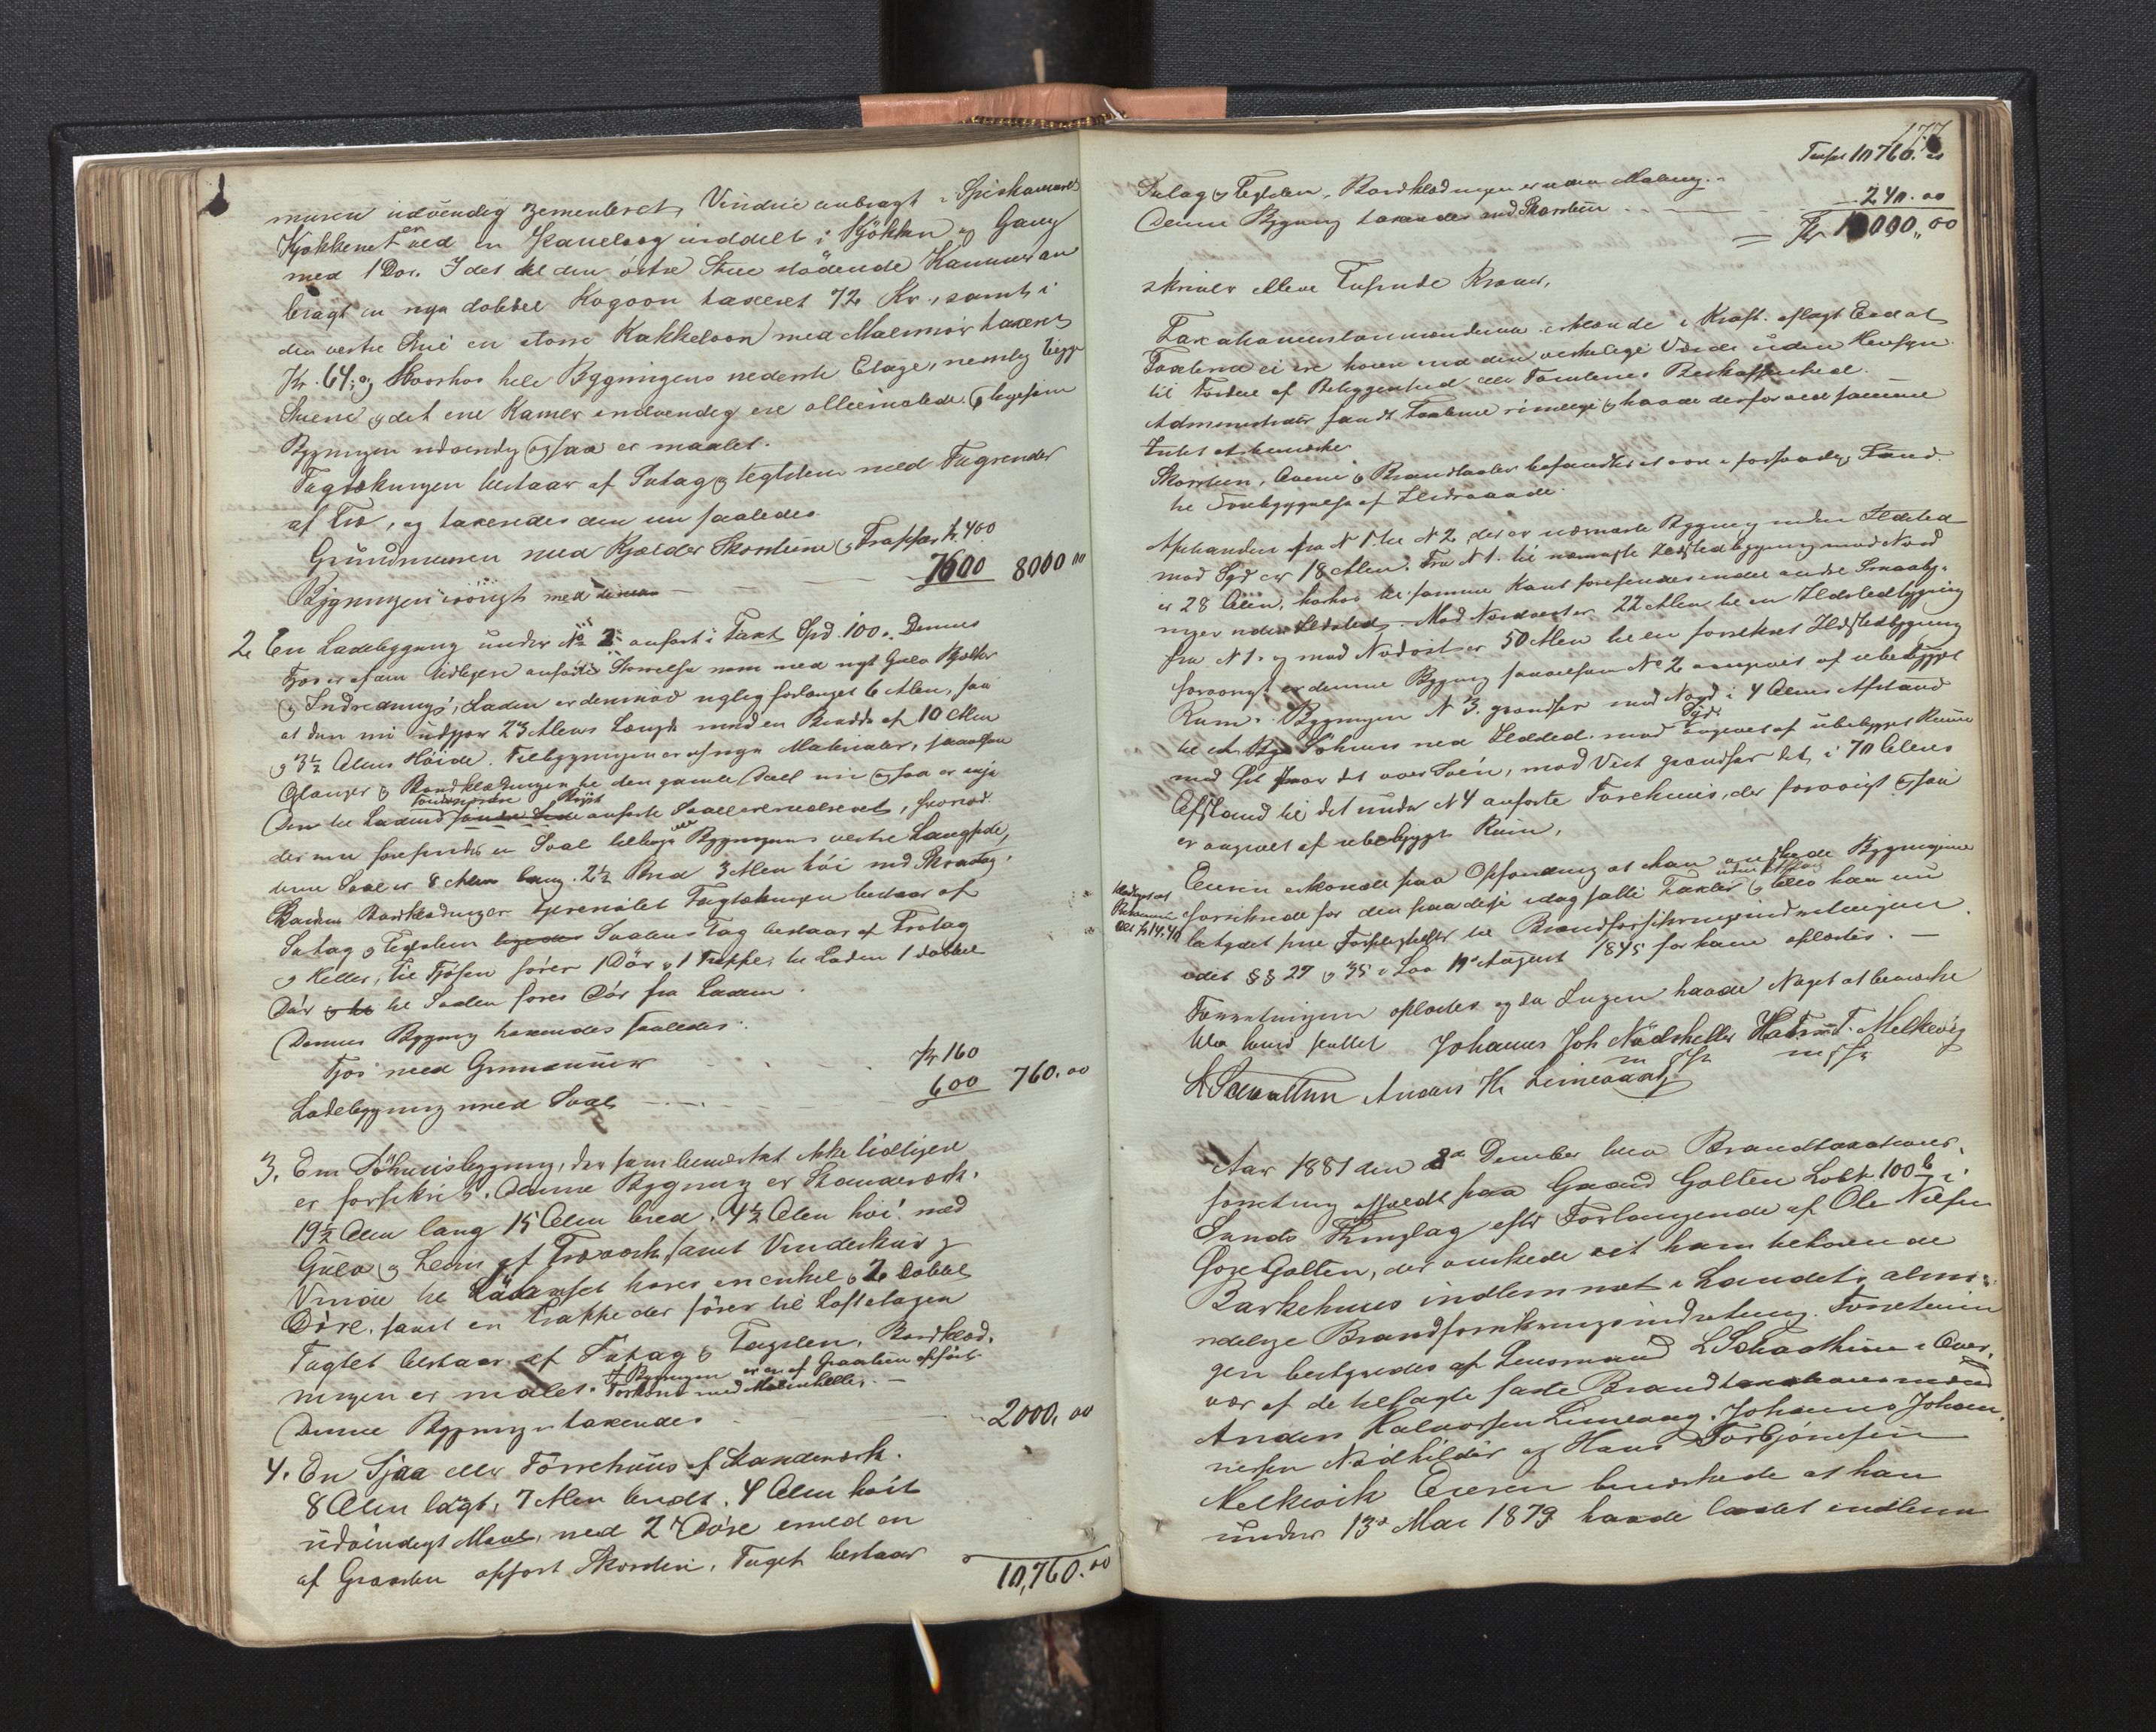 muren udvendig zementeret, Vinduie anbragt i Spiskameret
Kjøkkenet er ved en Paneelvæg inddelt i Kjøkken og Gang
med 1 Dør. I det til den østre Stue stödende Kammer an
bragt en nye dobbel Kogeovn taxeret 72 Kr., samt i
den vestre Stue en større Kakkelovn med Malmrör taxeret
Kr. 64, og hele Bygningens nederste Etage, nemlig begge
Stuene og det ene Kamer indvendig ere olliemalede, ligesom
Bygningen udvendig ogsaa er maalet.
Tagtækningen bestaar af Sutag og teglsten med Tagrender
af Træ, og taxeredes den nu saaledes
Grundmuren med Kjælder Skorstene og Trapper Kr. 400
Bygningen iövrigt med 7600 8000 00
2. En Ladebygning under No 2 anført i Taxt Spd. 100. Dennes
Fjøs er af den tidligere anførte Størrelse men med nyt Gulv Bjelker
og Indredning, Laden er derimod nylig forlænget 6 Alen, saa
at den nu udgjør 23 Alens Længde med en Bredde af 10 Alen
og 3½ Alens Höide. Tilbygningen er af nye Materialer, saavelsom
og Bordklædningen til den gamle Deel nu ogsaa er nye
Den til Ladens anførte Sval er nedrevet, hvorimod
der nu forefindes en Sval ved Bygningens vestre Langside,
denne Sval er 8 Alen lang 2½ bred 3 Alen höi med Skraatag.
Ladens Bordklædninger Tagtækningen bestaar af
Sutag og Teglsten Svalens Tag bestaar af Trotag
og Heller, til Fjøsen fører 1 Dör og 1 Trappe, til Laden 1 dobbel
Dör til Svalen fører Dör fra Laden.
Dennes Bygning taxeredes saaledes:
Fjös med Grundmur Kr 160
Ladebygning med Sval 600 760.00
3. En Söhuusbygning, der som bemærket ikke tidligere
er forsikret. Denne Bygning er Standerværk.
19½ Alen lang 15 Alen bred, 4½ Alen höi med
Gulv og Lem af Træværk samt Vindeskuur og
Vinde til hører en enkel og 2 dobbel
Döre, samt en Trappe der fører til Loftetagen
Taget bestaar af Sutag og Tagsten, Bordklæd-
ningen er malet.
Denne Bygning taxeredes 2000.00
4. En Sjaa eller Törrehuus af Standerværk.
8 Alen langt, 7 Alen bredt, 4 Alen höit
udvendigt Maal, med 2 Döre med en
af Graasten opfort Skorsten. Taget bestaar
10,760.00
177
Transp. 10760.00
Sutag og Teglsten, Bordklædningen er uden Maling.
Denne Bygning taxeredes med Skorsten 240.00
= Kr 11000,,00
skriver elleve Tusende Kroner,
Taxationsmændene erklærede i Kraft aflagt Eed at
Taxterne ei ere høiere end den virkelige Værdi uden Hensyn
til Fordele af Beliggenhed eller Tomtens Beskaffenhed.
Administrator fandt Taxterne rimelige og havde derfor ved samme
Intet at bemærke
Skorsten, Ovne og Brandtavler befandtes at være i forsvarlig Stand
til Forebyggelse af Ildsvaade.
Afstanden fra N 1 til N 2, der er nærmeste Bygning uden Ildsted
mod Syd er 18 Alen. Fra N 1 til nærmeste Ildstedbygning mod Nord
er 28 Alen, hvorhos til samme Kant forefindes endel andre Smaabyg-
ninger uden Ildsted. Mod Nordvest er 22 Alen til en Ildstedbygning
fra N 1 og mod Nordost er 50 Alen til en forsikret Ildstedbygning
forøvrigt er denne Bygning saavelsom No 2 omgivet af ubebygget
Rum. Bygningen N 3. grændser mod Nord i 4 Alens Afstand
til et Söhuus med Ildsted. mod Syd omgivet af ubebygget Rum
mod Öst staar det over Söen, mod Vest grændser det, i 70 Alens
Afstand til det under N 4 anførte Tørrehuus, der forøvrigt ogsaa
er omgivet af ubebygget Rum.
Eieren erklærede paa Opfordring at han ønskede Bygningerne
forsikrede for den paa disse idag satte Taxter og blev han nu
betydet sine Forpligtelser til Brandforsikringsindretningen
idet §§ 27 og 35 i Lov 19 August 1845 for ham oplæstes.
Forretningen oplæstes og da Ingen havde Noget at bemærke
blev hermed sluttet Johannes Joh Nödskelter Hans T. Melkevig
Anders H. Limevaag
Aar 1881 den 2den December blev Brandtaxations-
forretning afholdt paa Gaard Golten Løbe No 100 b i
Sunds Thinglag efter Forlangende af Ole Nilsen
Golten, der ønskede sit ham tilhørende
Barkehuus indlemmet i Landets almin-
delige Brandforsikringsindretning. Forretnin
gen bestyredes af Lensmand i Over-
vær af de tilsagte faste Brandtaxationsmænd
Anders Halvorsen Limevaag, Johannes Johan-
nesen og Hans Torbjörnsen
Melkevik Eieren bemærkede at han
under 13de Mai 1879 havde ladet indlem